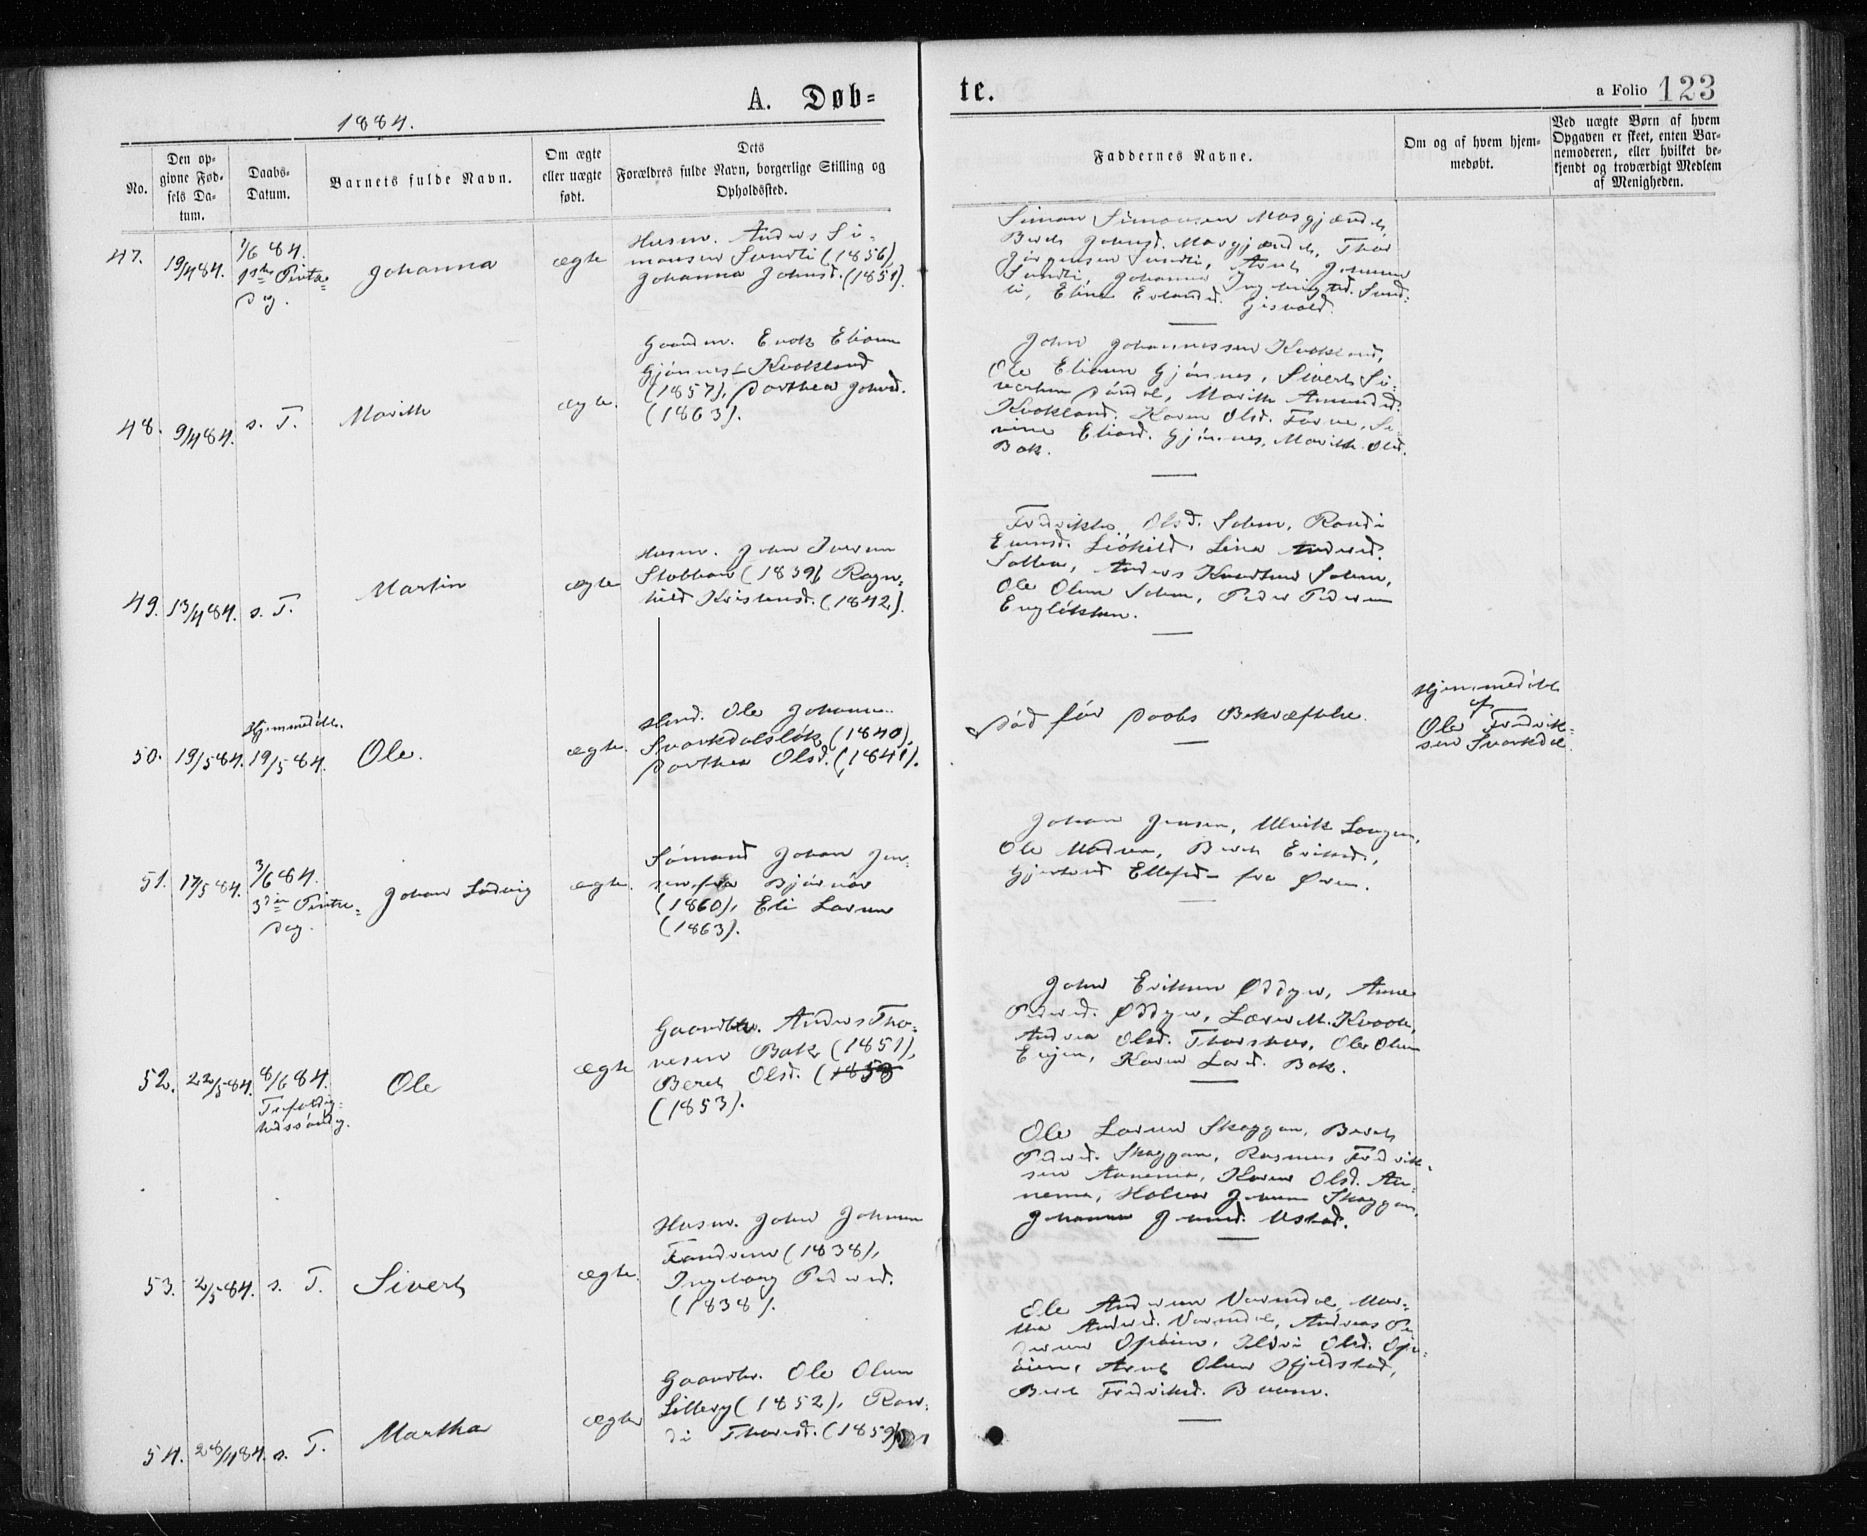 A. Døb-
te.
a Folio 123
1884.
No.
Den op-
givne Fød-
sels Da-
tum.
Daabs-
Datum.
Barnets fulde Navn.
Om ægte
eller uægte
født.
Dets
Forældres fulde Navn, borgerlige Stilling og
Opholdssted.
Faddernes Navne.
Om og af hvem hjem-
medøbt.
Ved uægte Børn af hvem
Opgaven er skeet, enten Bar-
nemoderen, eller hvilket be-
kjendt og troværdigt Medlem
af Menigheden.
47. 19/4 84.
1/6 84.
1ste Pintse-
dag.
Johanna
ægte
Husm. Anders Si-
monsen Sundli (1856),
Johanna Johnsd. (1851).
Simon Simonsen Mosgjændet,
Beret Johnsd. Mosgjændet, Thor
Jørgensen Sundli, Arnt Johnsen
Sundli, Johanna Sund-
li, Elina
48. 9/4 84. s. T.
Marith
ægte.
Gaardm. Enok Eliasen
Gjønnes - Kvokland
(1857), Dorthea Johnsd.
(1863).
John Johannessen Kvokland,
Ole Eliasen Gjønnes, Sivert Si-
Marith Amundsd.
Kvokland, Karen Olsd. Forve, Se-
rine Eliasd. Gjønnes, Marith Olsd.
Bak.
49. 13/4 84. s. T.
Martin
ægte
Husm. John Iversen
Stobban (1839), Ragn-
hild Kristensd. (1842).
Fredrikke Olsd. Solem, Randi
Evensd. Lina Andersd.
Anders Knudsen Solem,
Ole Olsen Solem, Peder Pedersen
Engløkken.
50. 19/5 84.
Hjemmedøbt.
19/5 84.
Ole.
ægte.
Ole Johnsen
Svorkdalsløk (1840),
Dorthea Olsd. (1841).
Død før Daabs Bekræftelse.
Hjemmedøbt
af
Ole Fredrik-
sen Svorkdal.
51. 17/5 84.
3/6 84.
3die Pintse-
dag.
Johan Ludvig
ægte.
Sømand Johan Jen-
sen fra Bjørnør
(1860), Eli Larsen
(1863).
Johan Jensen, Ulrik Langen,
Ole Madsen, Berit Eriksd.,
Gjertrud Ellefsd - fra Ørem.
52. 22/5 84.
8/6 84.
Trefoldig-
hedssøndag.
Ole
ægte
Gaardbr. Anders Tho-
resen Bak (1851),
Beret Olsd. (1858
(1853).
John Eriksen Øddyn, Anne
Pedersd. Øddyn, Lærer M. Kvaale,
Andrea Olsd. Thorshus, Ole Olsen
Evjen, Karen Larsd. Bak.
53. 2/5 84. s. T.
Sivert
ægte.
Husm. John Johnsen
(1838),
Ingeborg Pedersd.
(1838).
Ole Larsen Skoggan, Beret
Pedersd. Skoggan, Rasmus Fredrik-
sen Aunemo, Karen Olsd. Au-
nemo, Halvor Jonsen Skoggan,
Johanna Jonsd. Ustad.
54. 28/4 84. s. T.
Martha
ægte
Gaardbr. Ole Olsen
Lilleøy (1852), Ran-
di Thoresd. (1859).
Ole Andersen Vormdal, Mar-
tha Andersd. Vormdal, Andreas Pe-
dersen Opøien, Ildri Olsd. Op-
øien, Arnt Olsen Hjeldstad,
Berit Fredriksd.